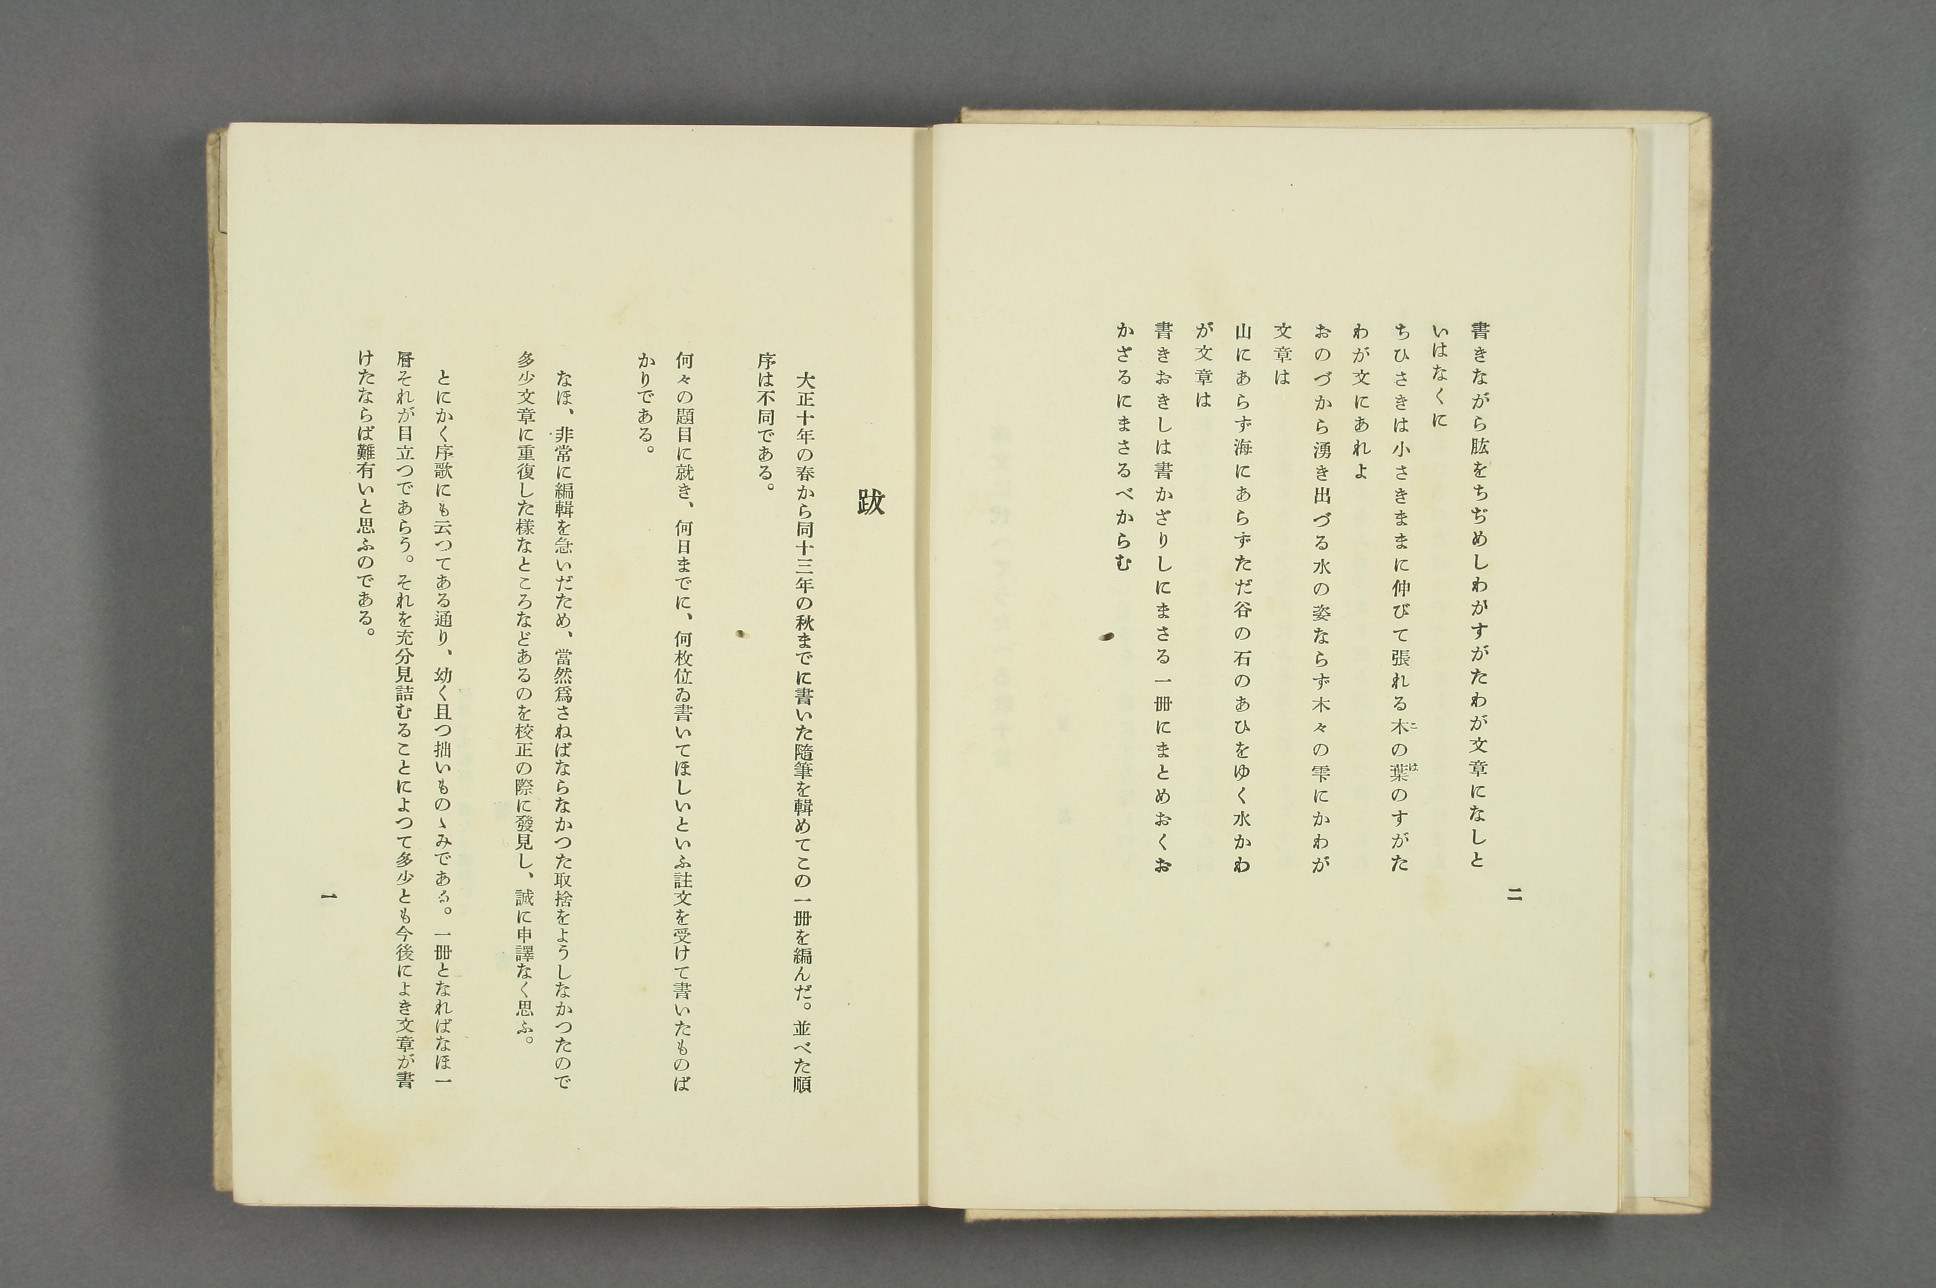 二
書きながら肱をちぢめしわがすがたわが文章になしと
いはなくに
ちひさきは小さきままに伸びて張れる木の葉のすがた
わが文にあれよ
おのづから湧き出づる水の姿ならず木々の雫にかわが
文章は
山にあらず海にあらずただ谷の石のあひをゆく水かわ
が文章は
書きおきしは書かざりしにまさる一冊にまとめおくお
かざるにまさるべからむ
跋
大正十年の春から同十三年の秋までに書いた隨筆を輯めてこの一冊を編んだ。並べた順
序は不同である。
何々の題目に就き、何日までに、何枚位ゐ書いてほしいといふ註文を受けて書いたものば
かりである。
なほ、非常に編輯を急いだため、當然爲さねばならなかつた取捨をようしなかつたので
多少文章に重復した樣なところなどあるのを校正の際に發見し、誠に申譯なく思ふ。
とにかく序歌にも云つてある通り、幼く且つ拙いものゝみである。一冊となればなほ一
層それが目立つであらう。それを充分見詰むることによつて多少とも今後によき文章が書
けたならば難有いと思ふのである。
一